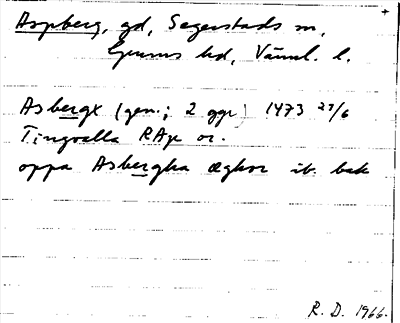 +
Aspberg, gd, Segerstads sn,
Grums hd, Värml. l.
Asbergx (gen.; 2 ggr) 1473 27/6
Tingvalla RAp or.
oppa Asbergha æghor ib. bak
R. D. 1966.